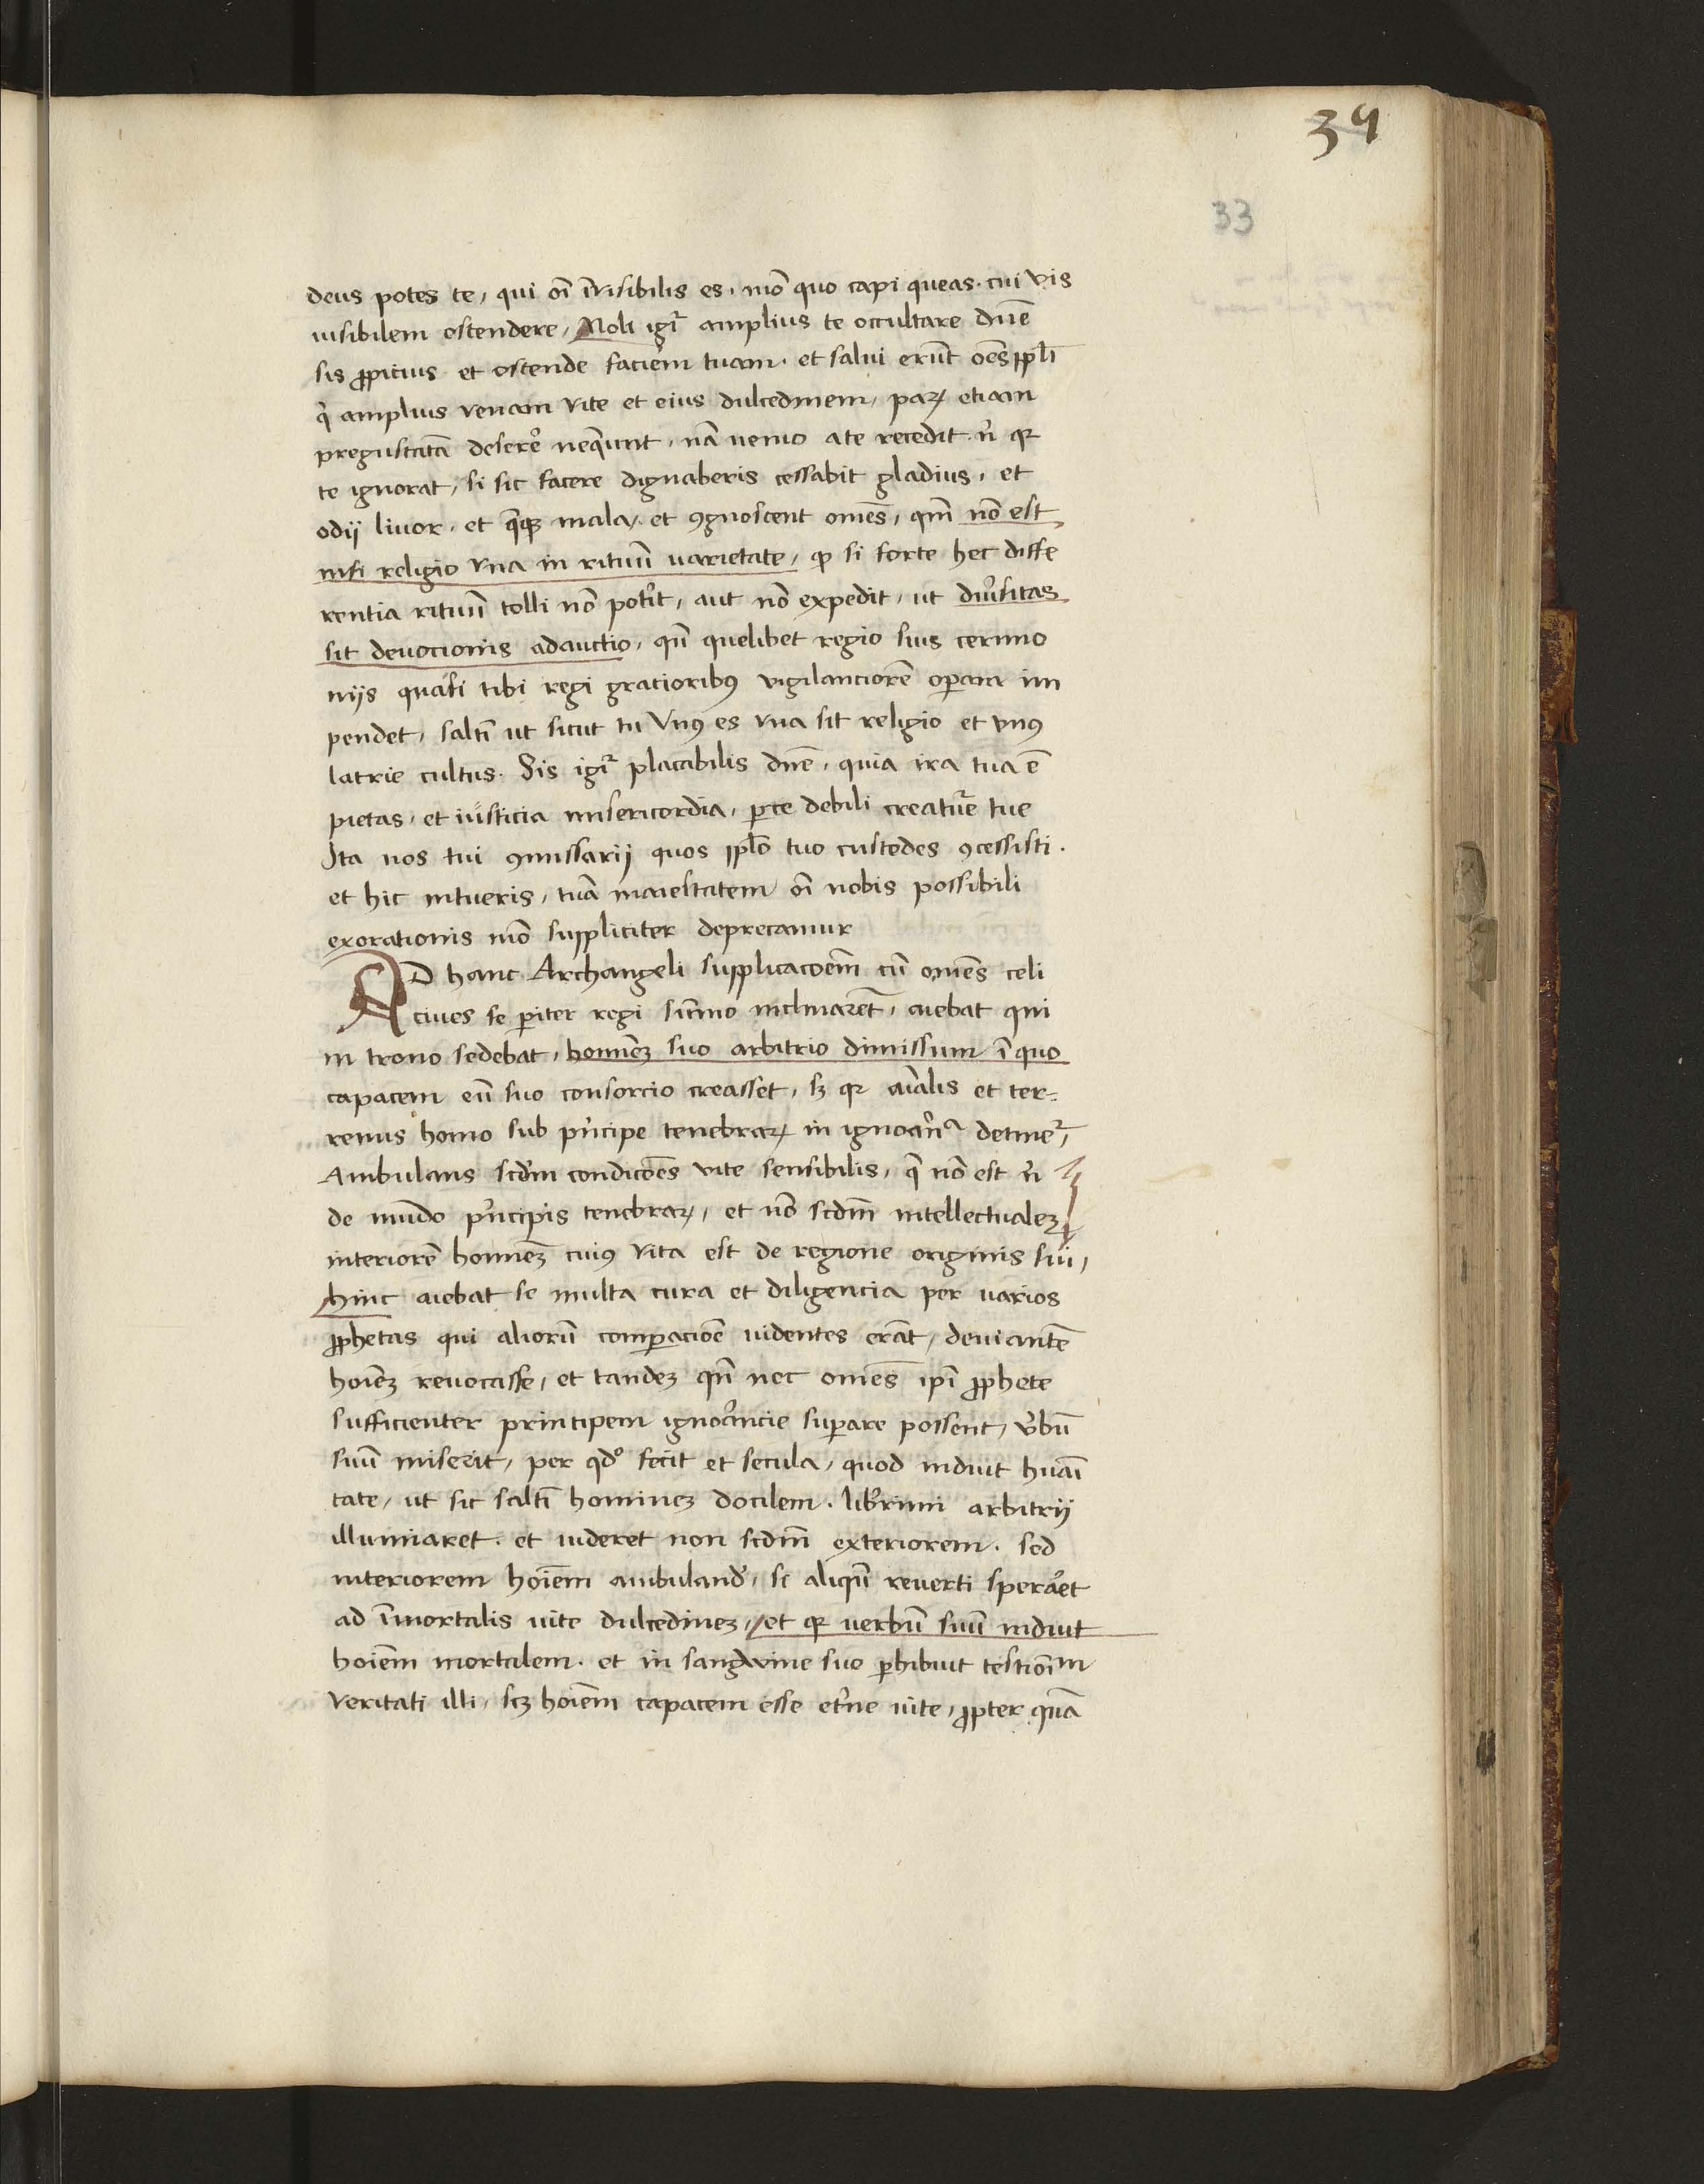 39
33
deus potes te, qui oī īvisibilis es. mō quo capi queas. cui vis
visibilem ostendere, Noli igr̄ amplius te occultare dn̄e
sis ꝓpicius et ostende faciem tuam. et salvi erūt oēs ppl̄i
q̇ amplius venam vite et eius dulcedinem, paꝝ etiam
pregustatā deserē neq̄unt, nā nemo a te recedit. nͥ qꝛ
te ignorat, si sic facere dignaberis cessabit gladius, et
odij livor. et q̄qꝫ mala, et ꝯgnoscent omēs, qm̄ nō est
nisi religio vna in rituū varietate, ꝙ si forte hec diffe
rentia rituū tolli nō potit̓, aut nō expedit, ut div̓sitas
sit devocionis adauctio, qn̄ quelibet regio suis cerimo
nijs quasi tibi regi gracioribꝰ vigilanciorē oꝑam im
pendet, saltī ut sicut tu vnꝰ es vna sit religio et vnꝰ
latrie cultus. Sis igr̄ placabilis dn̄e, quia ira tua ē
pietas, et iusticia misericordia, ꝑce debili creatur̄e tue
Ita nos tui ꝯmissarij quos ppl̄o tuo custodes ꝯcessisti.
et hic intueris, tuā maiestatem oī nobis possibili
exorationis mō suppliciter deprecamur
AD hanc Archangeli supplicacoēm cū omēs celi
cives se ꝑiter regi sūmo inclinarēt, aiebat qui
in trono sedebat, homiēꝫ suo arbitrio dimissum ī quo
capacem eū suo consorcio creasset, sꝫ qꝛ aīalis et ter-
renus homo sub pͥncipe tenebraꝝ in ignoanͬᵃ detinet̄,
Ambulans scd̄m condicōēs vite sensibilis, q̄ nō est nͥ
de mūdo pͥncipis tenebraꝝ, et nō scdm̄ intellectualeꝫ
interiorē homiēꝫ cuiꝰ vita est de regione originis sui,
hinc aiebat se multa cura et diligencia per varios
ꝓphetas qui aliorū comꝑacioē videntes erāt, deviantē
hoīeꝫ revocasse, et tandeꝫ qn̄ nec omēs ipī ꝓphete
sufficienter principem ignorāncie suꝑare possent, v̓bū
suū miserit, per qd̓ fecit et secula, quod induit huāī
tate, ut sic saltī homineꝫ docilem. lib̓rimi arbitrij
illumiaret. et videret non scdm̄ exteriorem. sed
interiorem hoīem ambuland̓, si aliqn̄ reverti speraet̓
ad īmortalis vite dulcedineꝫ, et qꝛ verbū suū induit
hoīem mortalem. et in sangwine suo ꝑhibuit testioīm
veritati illi, scꝫ hoīem capacem esse et̓ne vite, ꝓpter quā